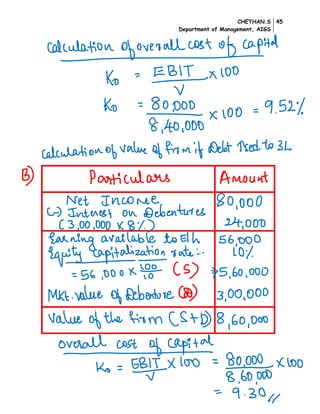 CHETHAN.S 45
Department of Management, AIGS
Calculation of overall cost of capital
Ko = EBIT/V x 100
Ko = 80,000/8,40,000 x 100 = 9.52%
Calculation of value of firm if Debt ised to 3L
B)
Particulars Amount
Net Income 80,000
(-) Interest on Debentures 24,000
(3,00,000 x 8%)
Earning available to E/h 56,000
Equity Capitalization rate:- 10%
= 56,000 x 100/10 (S) 5,60,000
Mkt. value of Debenture (D) 3,00,000
Value of the firm (S+D) 8,60,000
overall cost of capital
Ko = EBIT/V x 100 = 80,000/8,60,000 x 100
= 9.30//